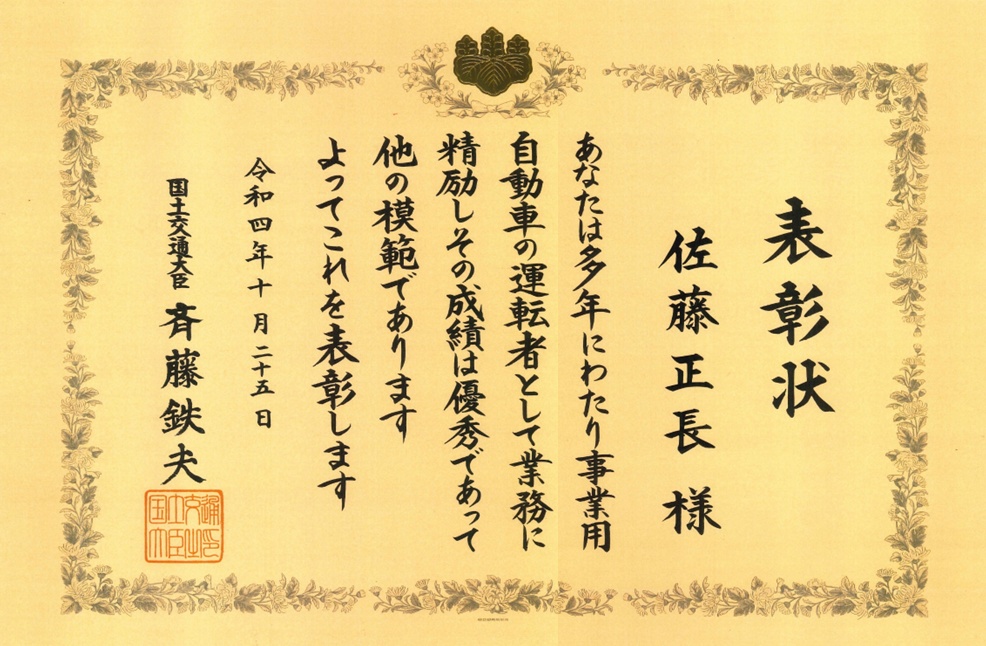 表彰状
佐藤正長 様
あなたは多年にわたり事業用
自動車の運転者として業務に
精励しその成績は優秀であって
他の模範であります
よってこれを表彰します
令和四年十月二十五日
国土交通大臣 斉藤鉄夫